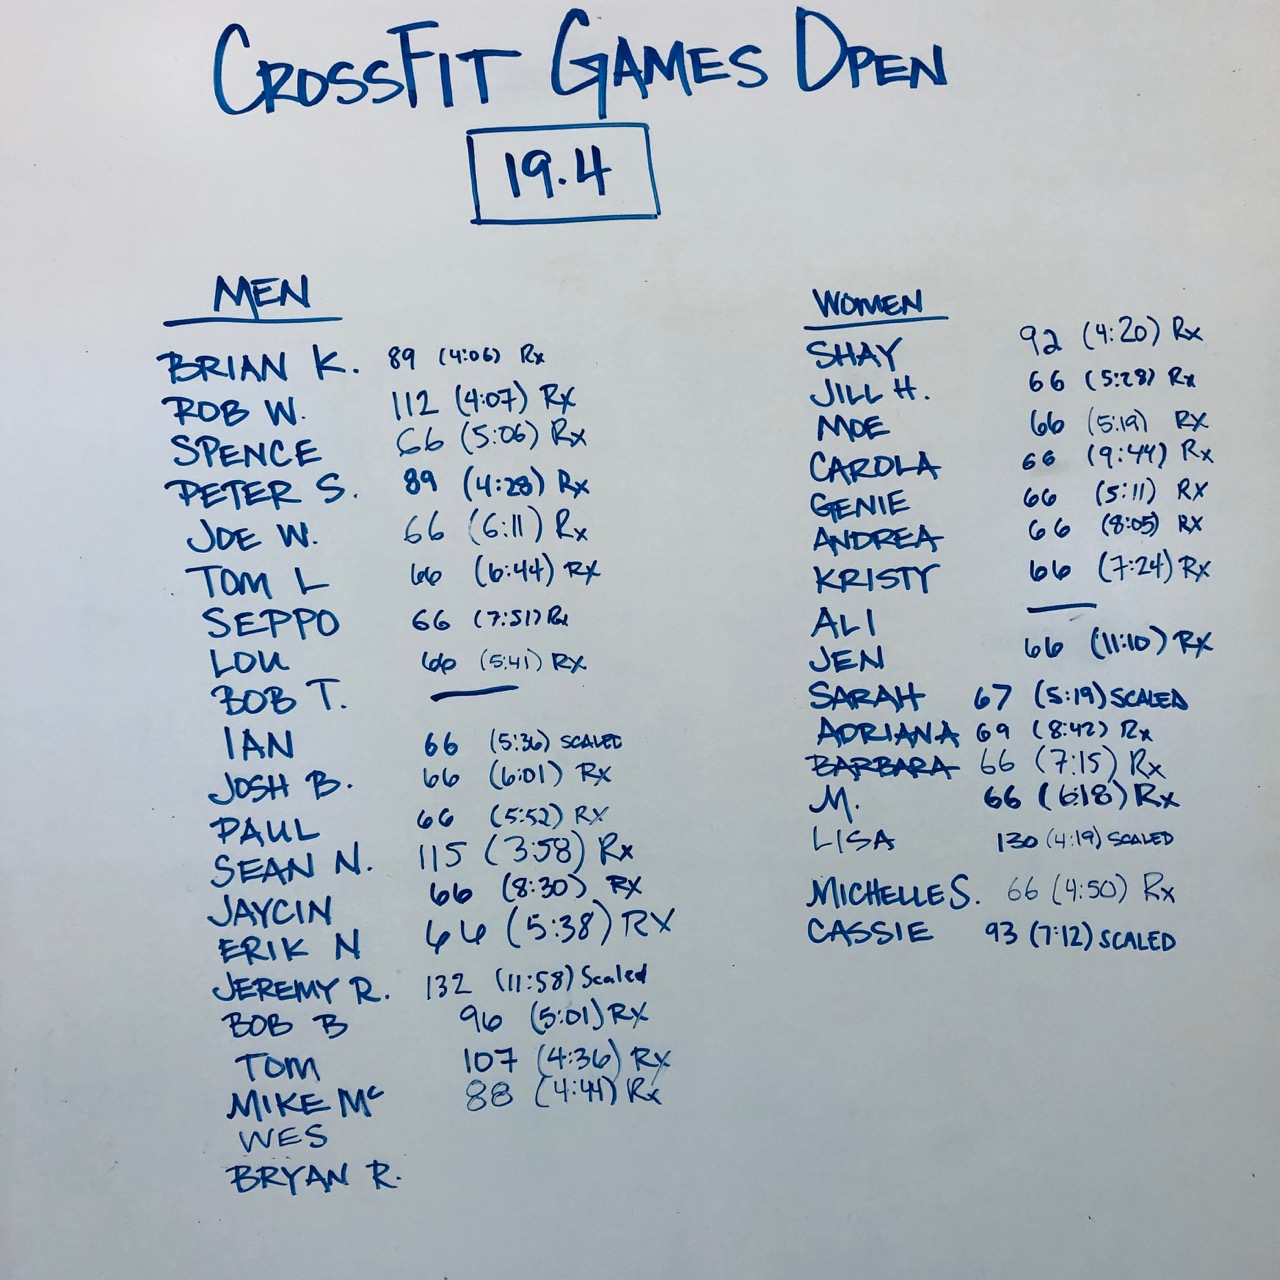 CROSSFIT GAMES OPEN
19.4
MEN
BRIAN K. 89 (4:06) Rx
ROB W. 112 (4:07) Rx
SPENCE 66 (5:06) Rx
PETER S. 89 (4:28) Rx
JOE W. 66 (6:11) Rx
TOM L 66 (6:44) Rx
SEPPO 66 (7:51) Rx
LOU 66 (5:41) Rx
BOB T. —
IAN 66 (5:36) SCALED
JOSH B. 66 (6:01) Rx
PAUL 66 (5:52) Rx
SEAN N. 115 (3:58) Rx
JAYCIN 66 (8:30) Rx
ERIK N 66 (5:38) RX
JEREMY R. 132 (11:58) Scaled
BOB B 96 (5:01) RX
TOM 107 (4:36) Rx
MIKE Mc 88 (4:44) Rx
WES
BRYAN R.
WOMEN
SHAY 92 (4:20) Rx
JILL H. 66 (5:28) Rx
MOE 66 (5:19) RX
CAROLA 66 (9:44) Rx
GENIE 66 (5:11) RX
ANDREA 66 (8:05) RX
KRISTY 66 (7:24) Rx
ALI —
JEN 66 (11:10) RX
SARAH 67 (5:19) SCALED
ADRIANA 69 (8:42) Rx
BARBARA 66 (7:15) Rx
M. 66 (6:18) Rx
LISA 130 (4:19) SCALED
MICHELLE S. 66 (4:50) Rx
CASSIE 93 (7:12) SCALED